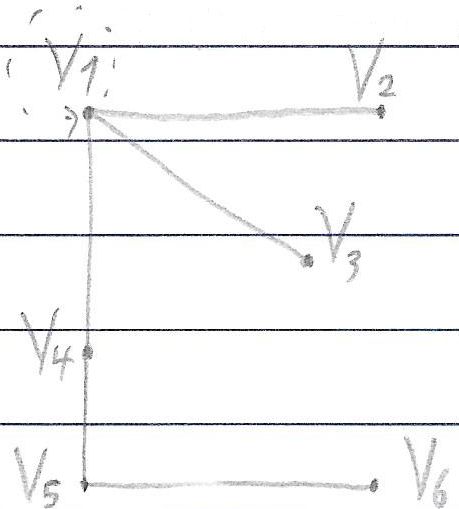 V1 V2
V3
V4
V5 V6